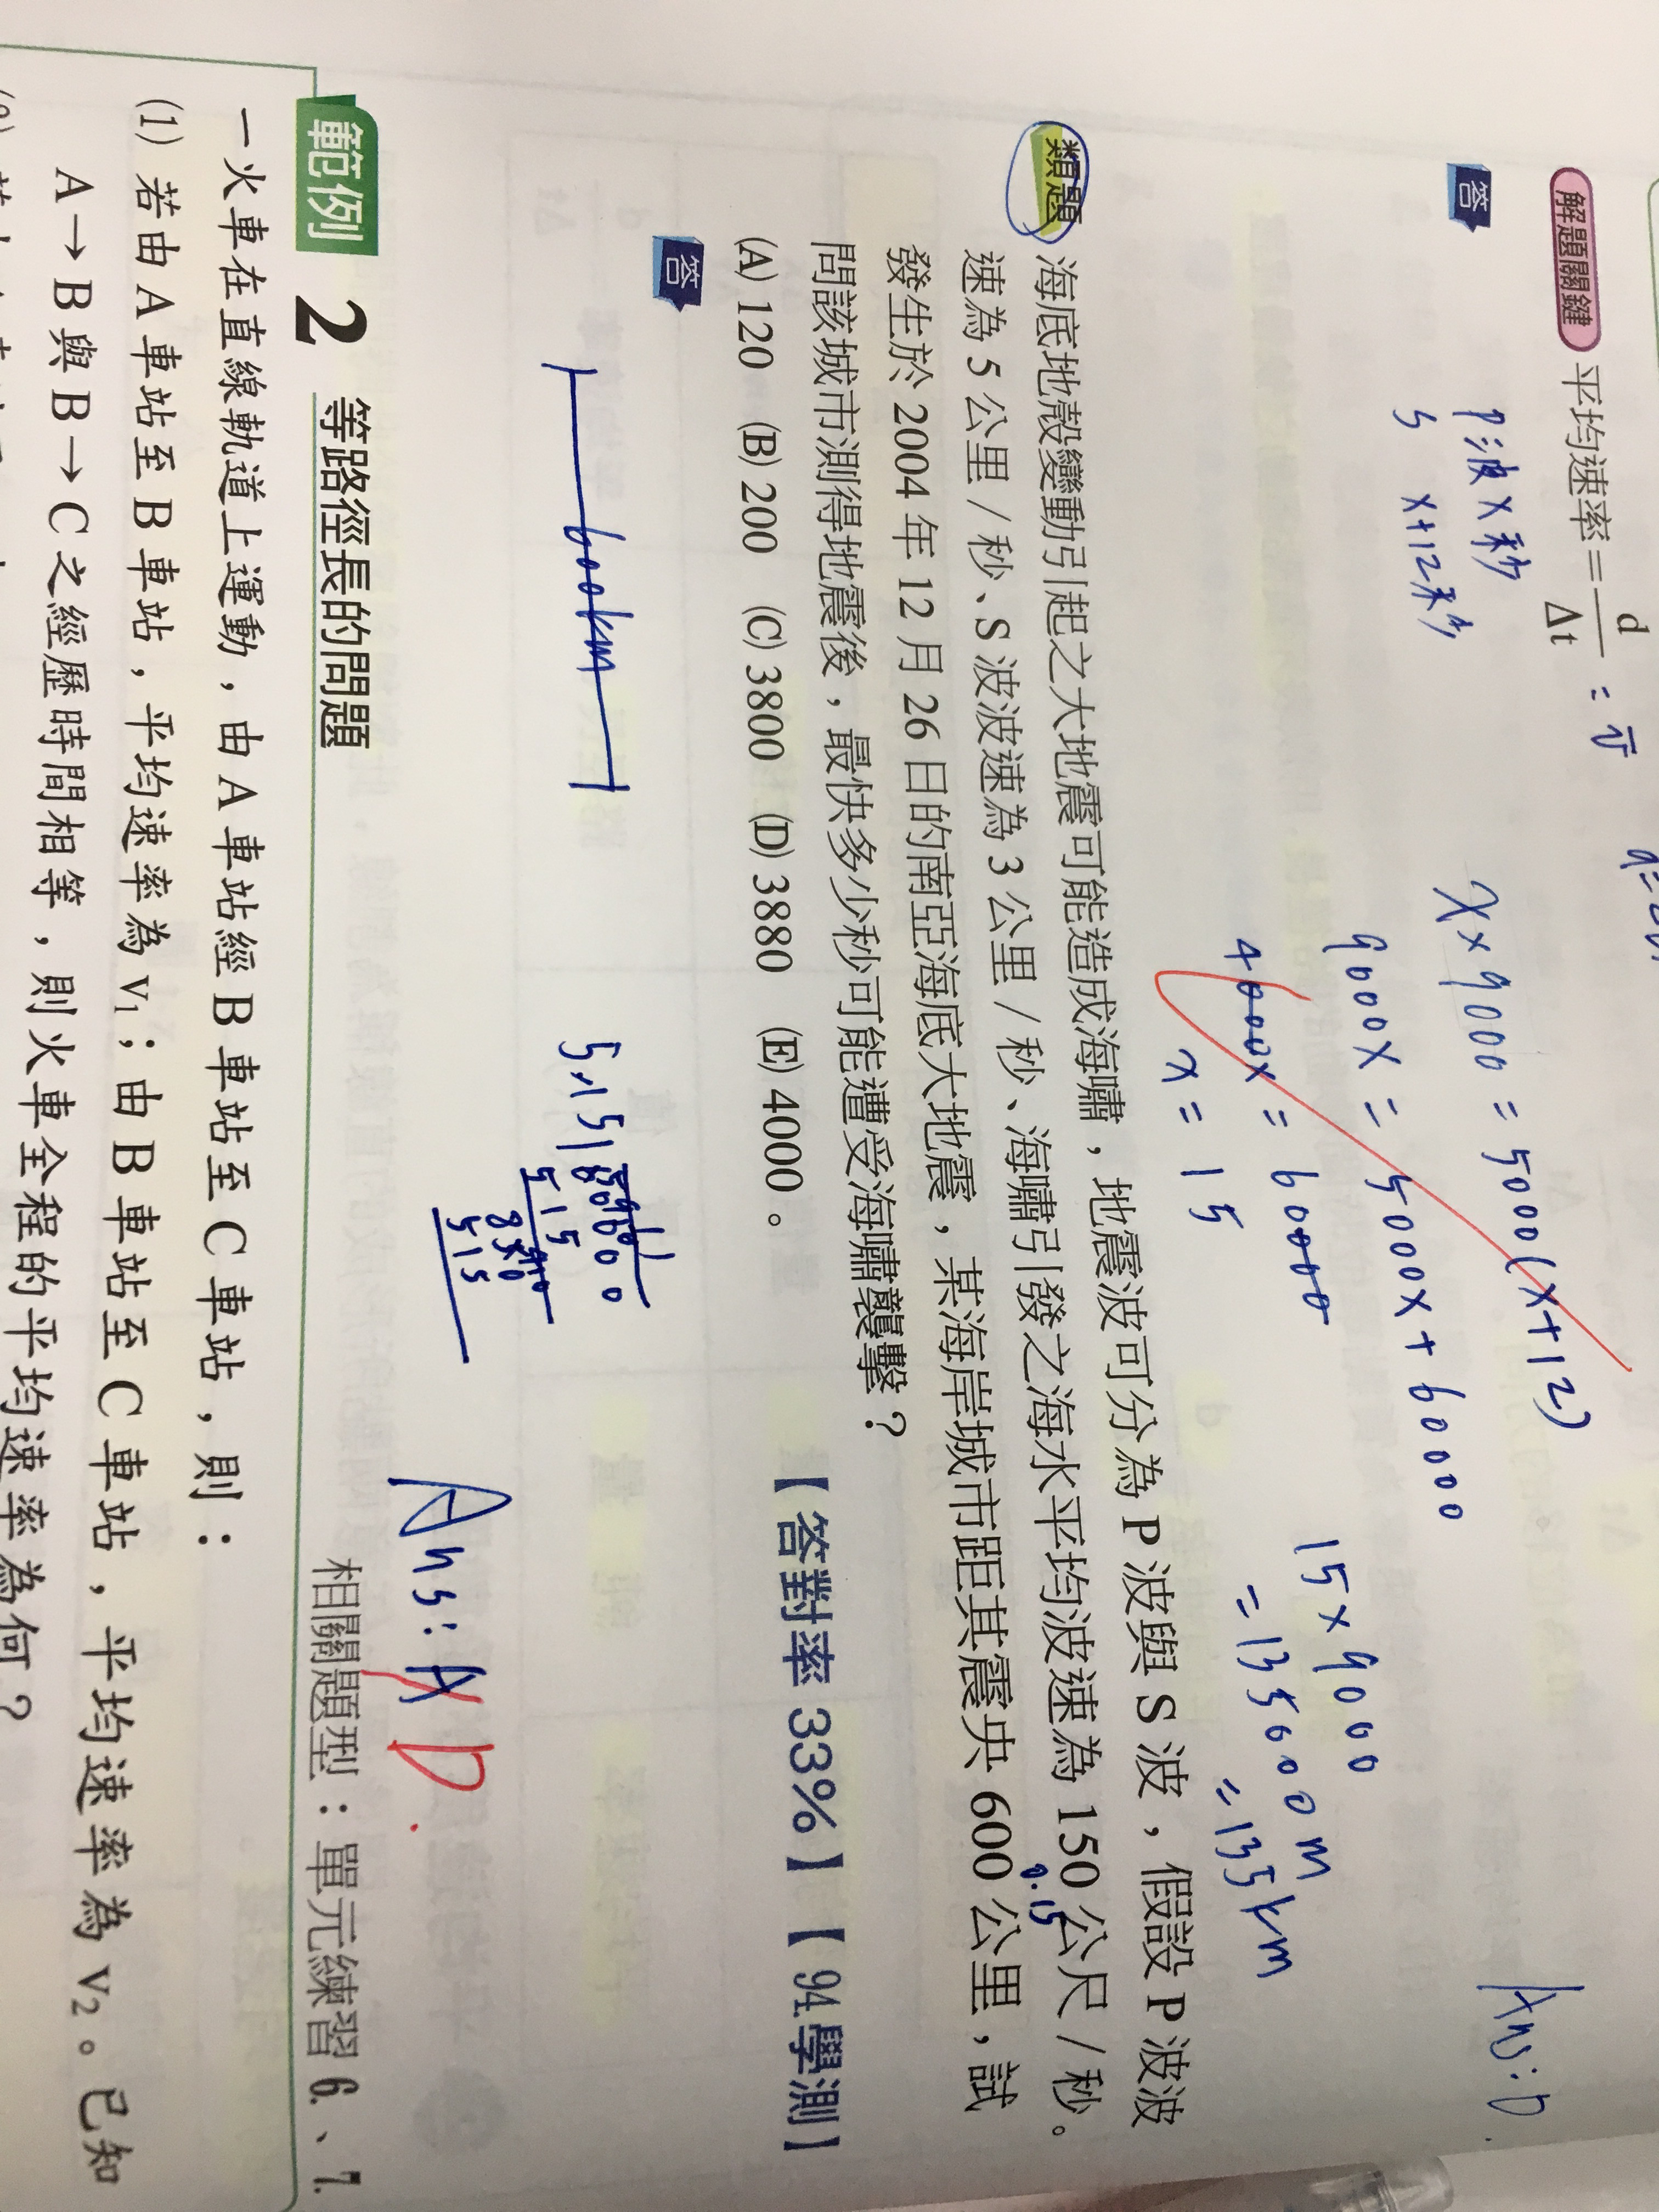 解題關鍵 平均速率=d/Δt = v̄
答 P波 x秒
S x+12秒
x×9000=5000(x+12)
9000x=5000x+60000
4000x=60000
x=15
15×9000
=135000m
=135km
Ans:D
類題 海底地殼變動引起之大地震可能造成海嘯，地震波可分為 P 波與 S 波，假設 P 波波
速為 5 公里/秒、S 波波速為 3 公里/秒、海嘯引發之海水平均波速為 150 公尺/秒。
0.15
發生於 2004 年 12 月 26 日的南亞海底大地震，某海岸城市距其震央 600 公里，試
問該城市測得地震後，最快多少秒可能遭受海嘯襲擊？
(A) 120 (B) 200 (C) 3800 (D) 3880 (E) 4000。 【答對率 33%】【94.學測】
答
600km
Ans: A D
範例 2 等路徑長的問題
相關題型：單元練習 6.、7.
一火車在直線軌道上運動，由 A 車站經 B 車站至 C 車站，則：
(1) 若由 A 車站至 B 車站，平均速率為 v₁；由 B 車站至 C 車站，平均速率為 v₂。已知
A→B 與 B→C 之經歷時間相等，則火車全程的平均速率為何？